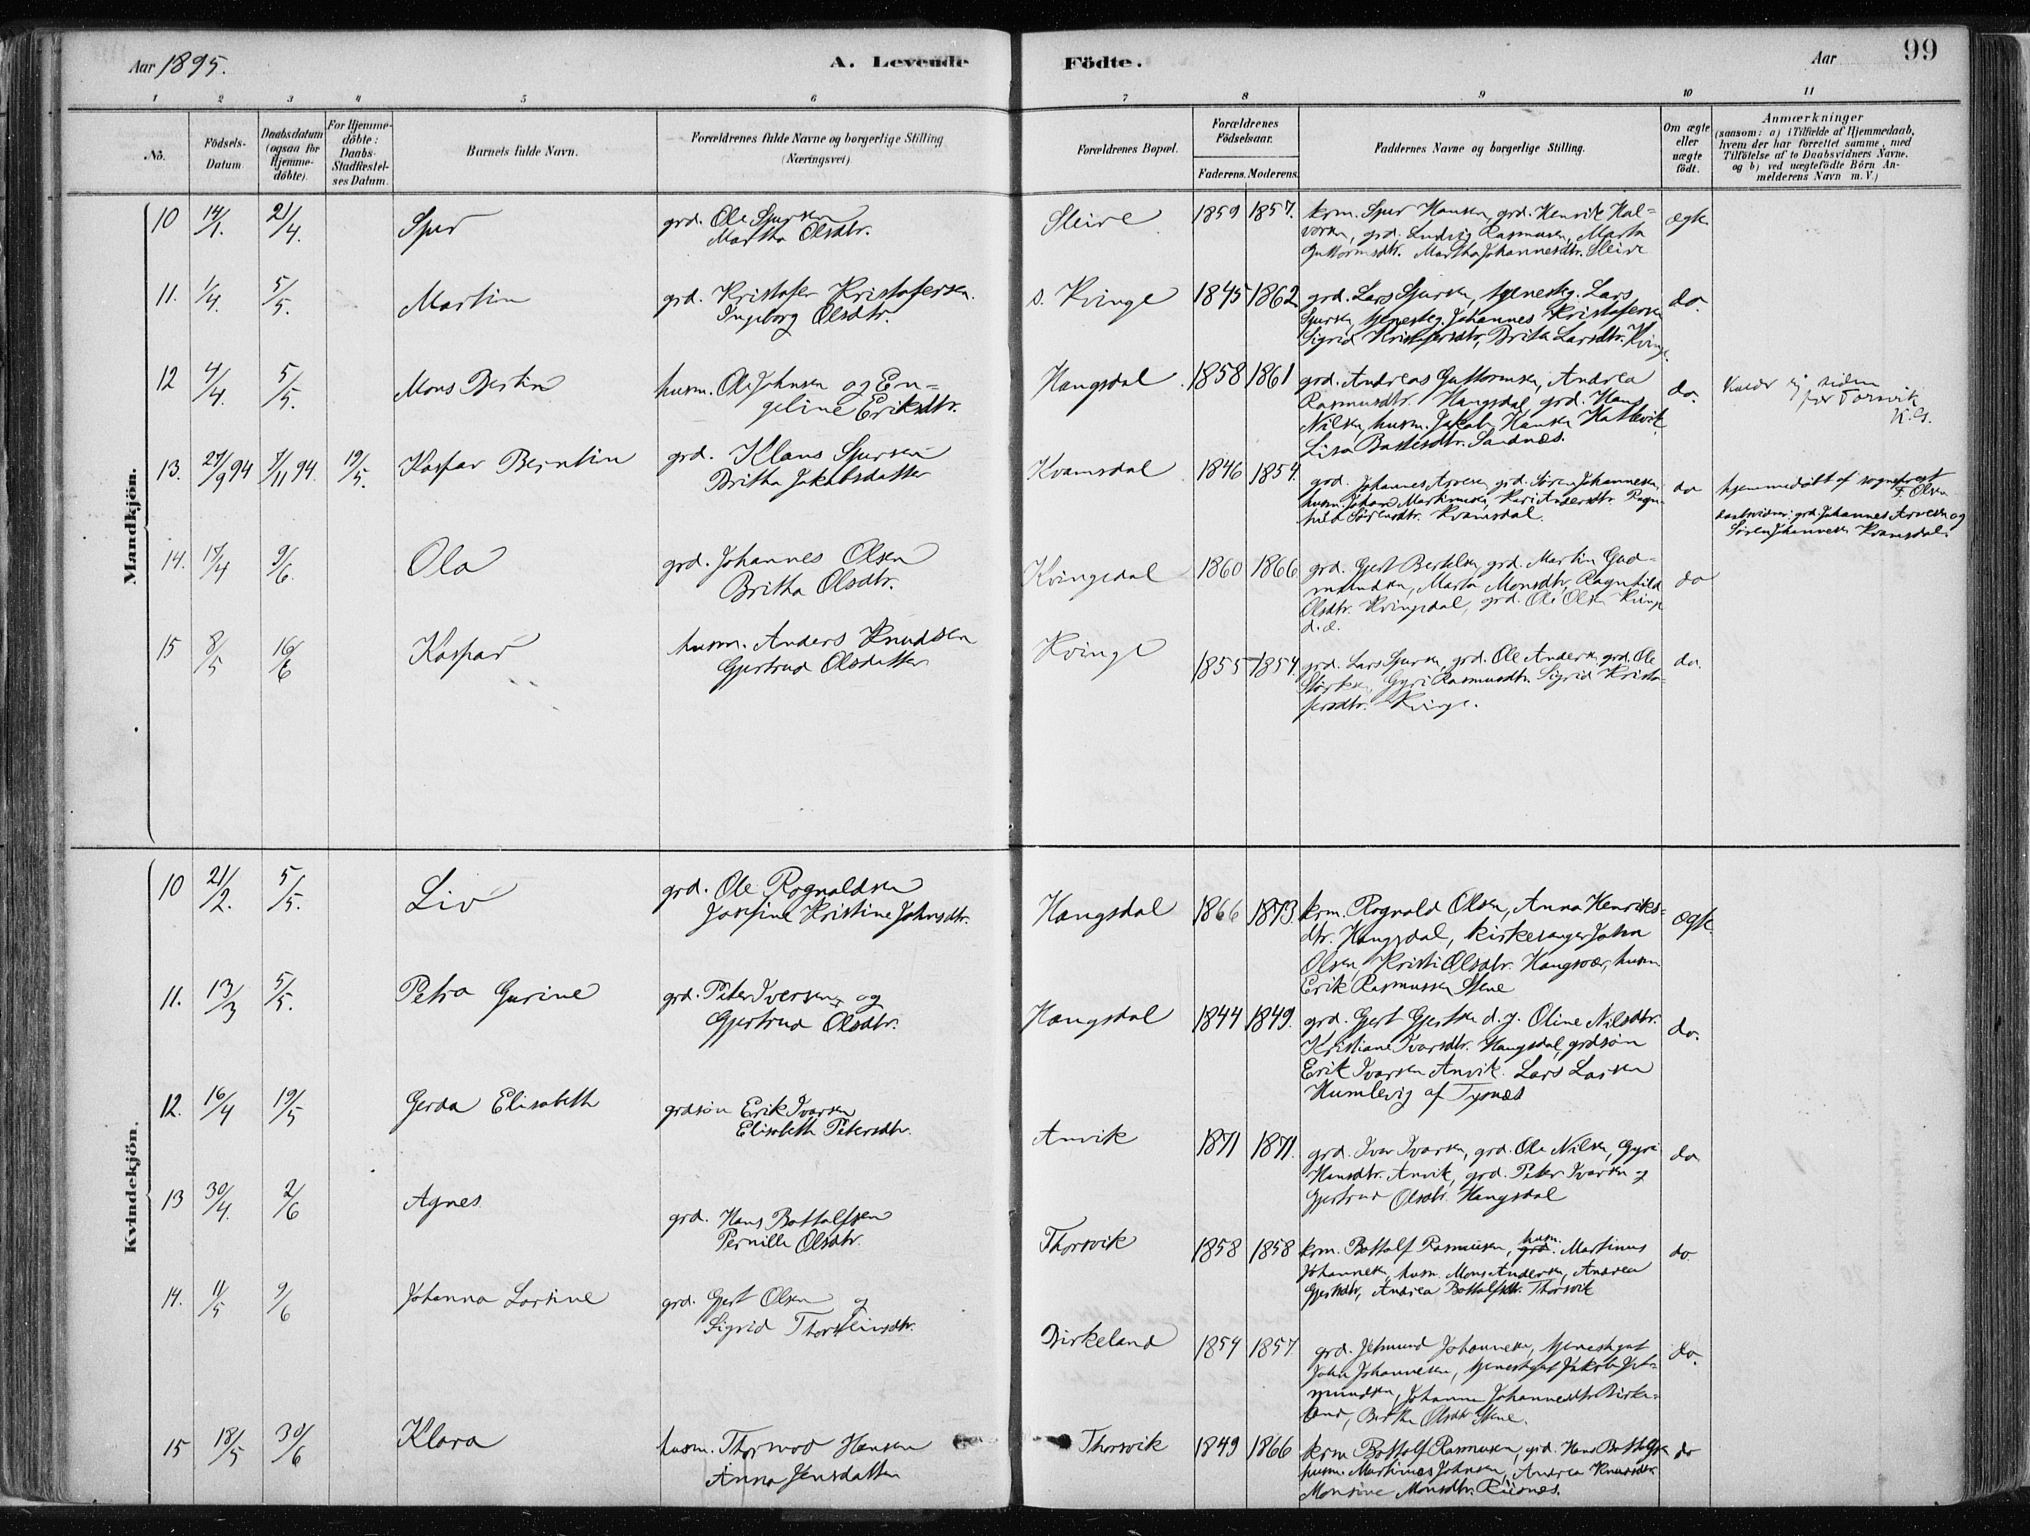 Aar 1895.
A. Levende Födte.
Aar
99
1 2 3 4 5 6 7 8 9 10 11
No.
Födsels-Datum.
Daabsdatum (ogsaa for Hjemme-döbte).
For Hjemme-döbte: Daabs-Stadfæstel-ses Datum.
Barnets fulde Navn.
Forældrenes fulde Navne og borgerlige Stilling (Næringsvei).
Forældrenes Bopæl.
Forældrenes Födselsaar.
Faderens. Moderens.
Faddernes Navne og borgerlige Stilling.
Om ægte eller uægte födt.
Anmærkninger
(saasom: a) i Tilfælde af Hjemmedaab,
hvem der har forrettet samme, med
Tilföielse af to Daabsvidners Navne.
og b) ved uægtefödte Börn An-
melderens Navn m. V.)
Mandkjön.
10 14/1. 21/4. Spur grd. Ole Spursen
Martha Olsdtr.
Sleire 1859 1857. krm. Spur Hansen, grd. Henrik Hal-
vorsen, grd. Ludvig Rasmussen, Marta
Guttormsdtr. Martha Johannesdtr. Sleire
ægte
11. 1/4. 5/5. Martin grd. Kristofer Kristofersen.
Ingeborg Olsdtr.
s. Kvinge 1845 1862 grd. Lars Spursen, tjenestg. Lars
Spursen, tjenestg. Johannes Kristofersen
Sigrid Kristofersdtr, Brita Larsdtr. Kvinge.
do.
12 4/4. 5/5. Mons Bertin husm. Ole Johnsen og En-
geline Eriksdtr.
Haugsdal 1858 1861 grd. Andreas Guttormsen, Andrea
Rasmusdtr. Haugsdal grd. Hans
Nilsen, husm. Jakob Hansen
Lisa Sandnæs.
do. siden
Torsvik
13. 27/9 94 7/11 94. 19/5. Kaspar Berntin grd. Klaus Spursen
Britha Jakobsdatter
Kvamsdal 1846 1854. grd. Johannes Arvesen, grd. Søren Johannesen,
husm. Johan Martinusen, Kari Andersdtr. Ragn-
hild Sørensdtr. Kvamsdal.
do hjemmedöbt af sogneprest
F. Olsen
daabsvidner: grd. Johannes Arvesen og
Søren Johannesen Kvamsdal.
14. 17/4 9/6. Ola grd. Johannes Olsen
Britha Olsdtr.
Kvingedal 1860 1866 grd. Gjert Bertelsen, grd. Martin Gud-
mundsen, Marta Monsdtr, Ragnhild
Olsdtr. Kvingedal, grd. Ole Olsen Kvinge
d. æ.
do
15 8/5 16/6 Kaspar husm. Anders Knudsen
Gjertrud Olsdatter
Kvinge 1855 1854. grd. Lars Spursen, grd. Ole Andersen, grd. Ole
Størksen, Gyri Rasmusdtr. Sigrid Kristo-
fersdtr. Kvinge.
do.
Kvindekjön.
10 21/2. 5/5. Liv grd. Ole Rognaldsen
Josefine Kristine Johnsdtr.
Haugsdal 1866 1873. krm. Rognald Olsen, Anna Henriks-
dtr. Haugsdal, kirkesanger John
Olsen, Kristi Olsdtr. Haugsvær, husm
Erik Rasmussen Stene
ægte.
11. 13/3 5/5. Petra Gurine grd. Peter Iversen og
Gjertrud Olsdtr.
Haugsdal 1844 1849. grd. Gjert Gjertsen d. y. Oline Nilsdtr.
Kristiane Ivarsdtr. Haugsdal, grdsøn
Erik Ivarsen Anvik. Lars Larsen
Humlevig af Tysnæs
do.
12. 16/4 19/5 Gerda Elisabeth grdsøn Erik Ivarsen
Elisabeth Petersdtr.
Anvik 1871 1871. grd. Ivar Ivarsen, grd. Ole Nilsen, Gyri
Hansdtr. Anvik, grd. Peter Ivarsen og
Gjertrud Olsdtr. Haugsdal
do
13 30/4. 2/6 Agnes grd. Hans Bottolfsen
Pernille Olsdtr.
Thorsvik 1858 1858 krm. Bottolf Rasmusen, husm. Martinus
Johannesen, husm. Mons Andersen, Andrea
Gjertsdtr, Andrea Bottolfsdtr. Thorsvik
do
14. 11/5 9/6 Johanna Lastine grd. Gjert Olsen og
Sigrid Thorsteinsdtr.
Birkeland 1854 1857. grd. Jetmund Johannesen, tjenestgut
John Johannesen, tjenestgut Jakob Jet-
mundsen, Johanna Johannesdtr. Birke-
land, Britha Olsdtr Stene.
do.
15 18/5 30/6 Klara husm. Thormod Hansen
Anna Jensdatter
Thorsvik 1849 1866 krm Bottolf Rasmusen, grd. Hans Bottolfsen
husm. Martinus Johnsen, Andrea Knudsdtr
Monsine Monsdtr. Risnes.
do